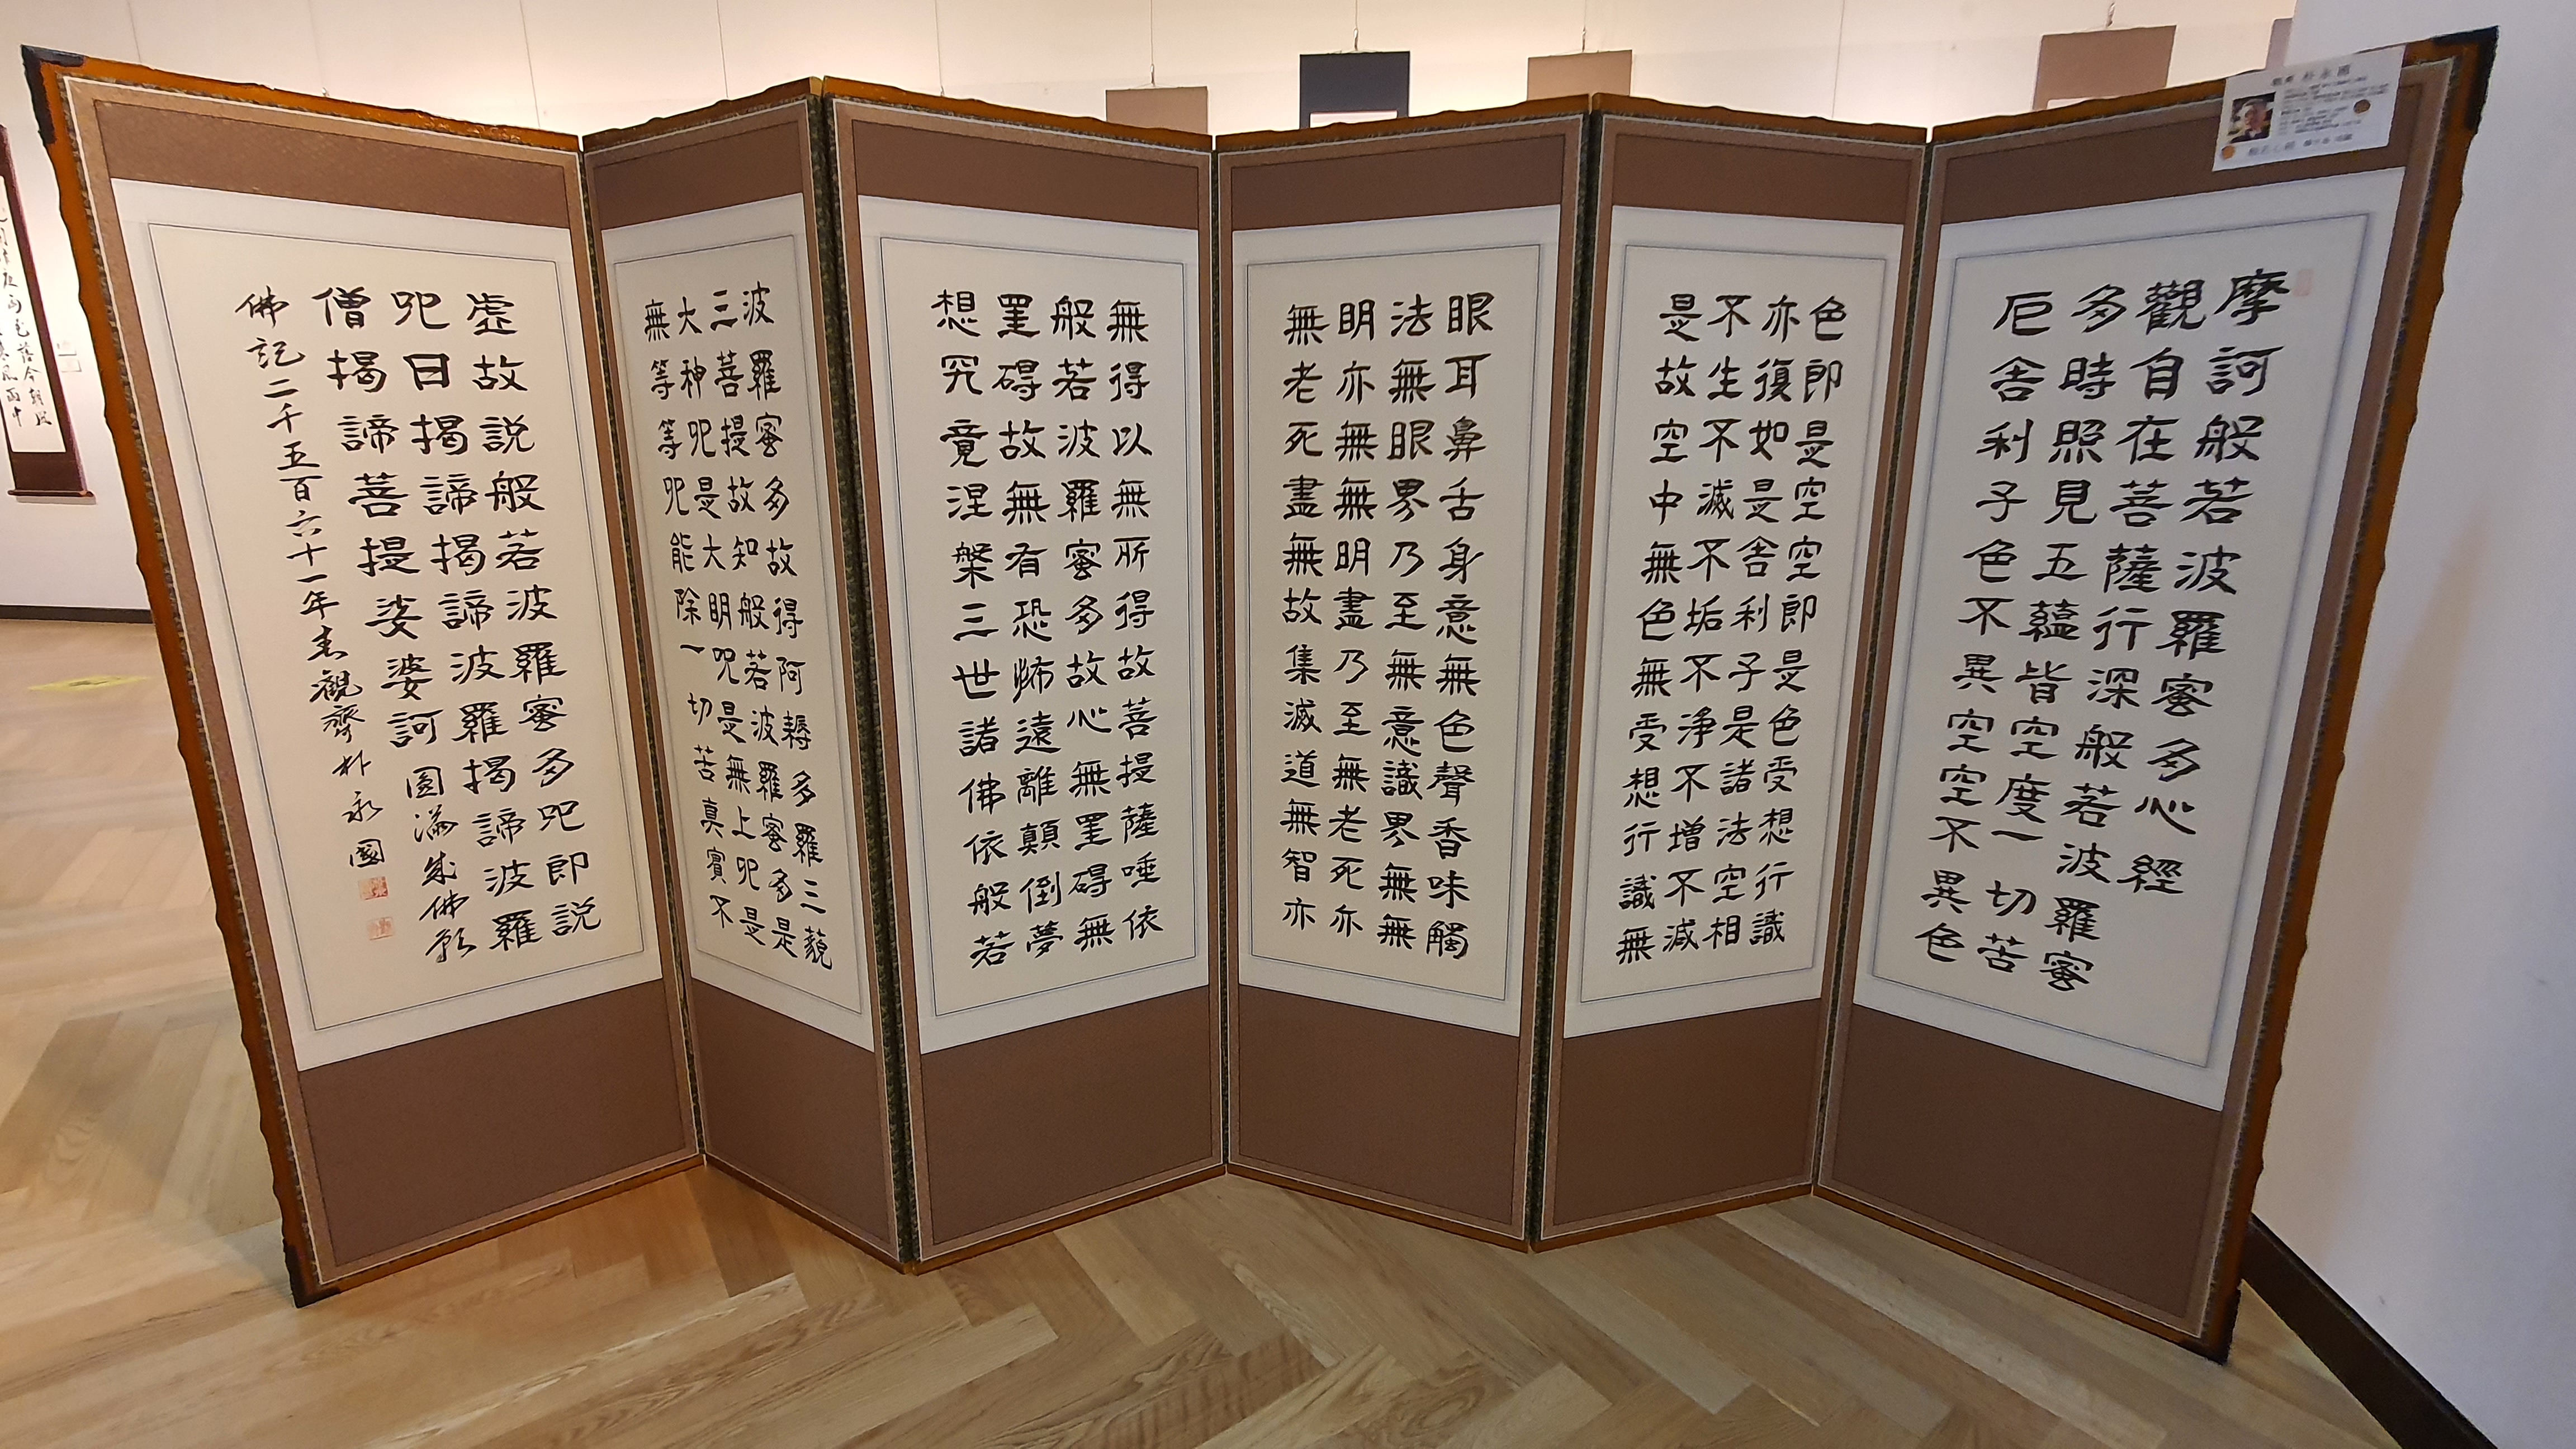 摩訶般若波羅蜜多心經
觀自在菩薩行深般若波羅蜜
多時照見五蘊皆空度一切苦
厄舍利子色不異空空不異色
色即是空空即是色受想行識
亦復如是舍利子是諸法空相
不生不滅不垢不淨不增不減
是故空中無色無受想行識無
眼耳鼻舌身意無色聲香味觸
法無眼界乃至無意識界無無
明亦無無明盡乃至無老死亦
無老死盡無故集滅道無智亦
無得以無所得故菩提薩唾依
般若波羅蜜多故心無罣碍無
罣碍故無有恐怖遠離顛倒夢
想究竟涅槃三世諸佛依般若
波羅蜜多故得阿耨多羅三藐
三菩提故知般若波羅蜜多是
大神呪是大明呪是無上呪是
無等等呪能除一切苦真實不
虛故説般若波羅蜜多呪即説
呪曰揭諦揭諦波羅揭諦波羅
僧揭諦菩提娑婆訶 圓滿成佛願
佛記二千五百六十一年春觀齊朴永國